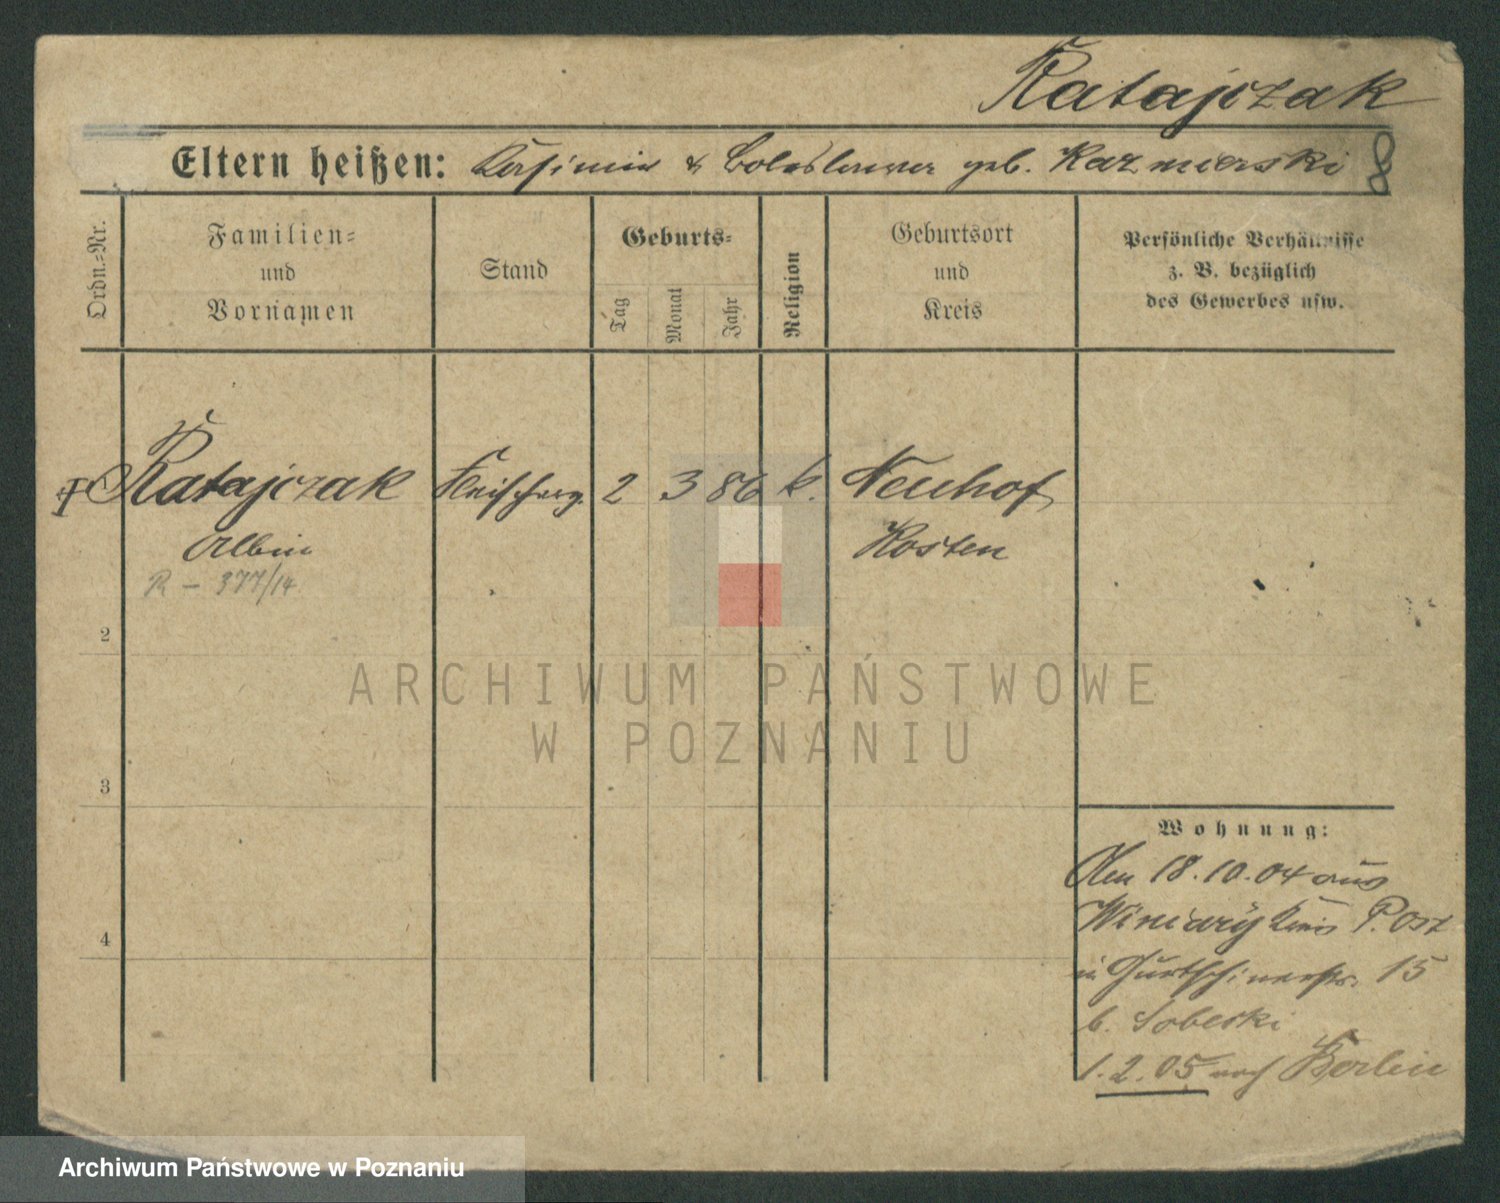 Ratajczak
Eltern heißen: Kasimir & Boleslawa geb. Kazmierski
8
Ordn.-Nr.
Familien-
und
Vornamen
Stand
Geburts-
Tag
Monat
Jahr
Religion
Geburtsort
und
Kreis
Persönliche Verhältnisse
z. B. bezüglich
des Gewerbes usw.
Ratajczak
Fleischerg. 2 3 86 k. Neuhof
Albin
Kosten
R – 377/14
2
ARCHIWUM PAŃSTWOWE
W POZNANIU
3
4
Wohnung:
Den 18.10.04 aus
Winiary Kreis P. Ost
in Gurtschinerstr. 15
b. Sobeski
1.2.05 nach Berlin
Archiwum Państwowe w Poznaniu